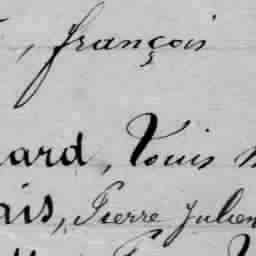 , françois
ard, Louis
ais, Pierre Julien